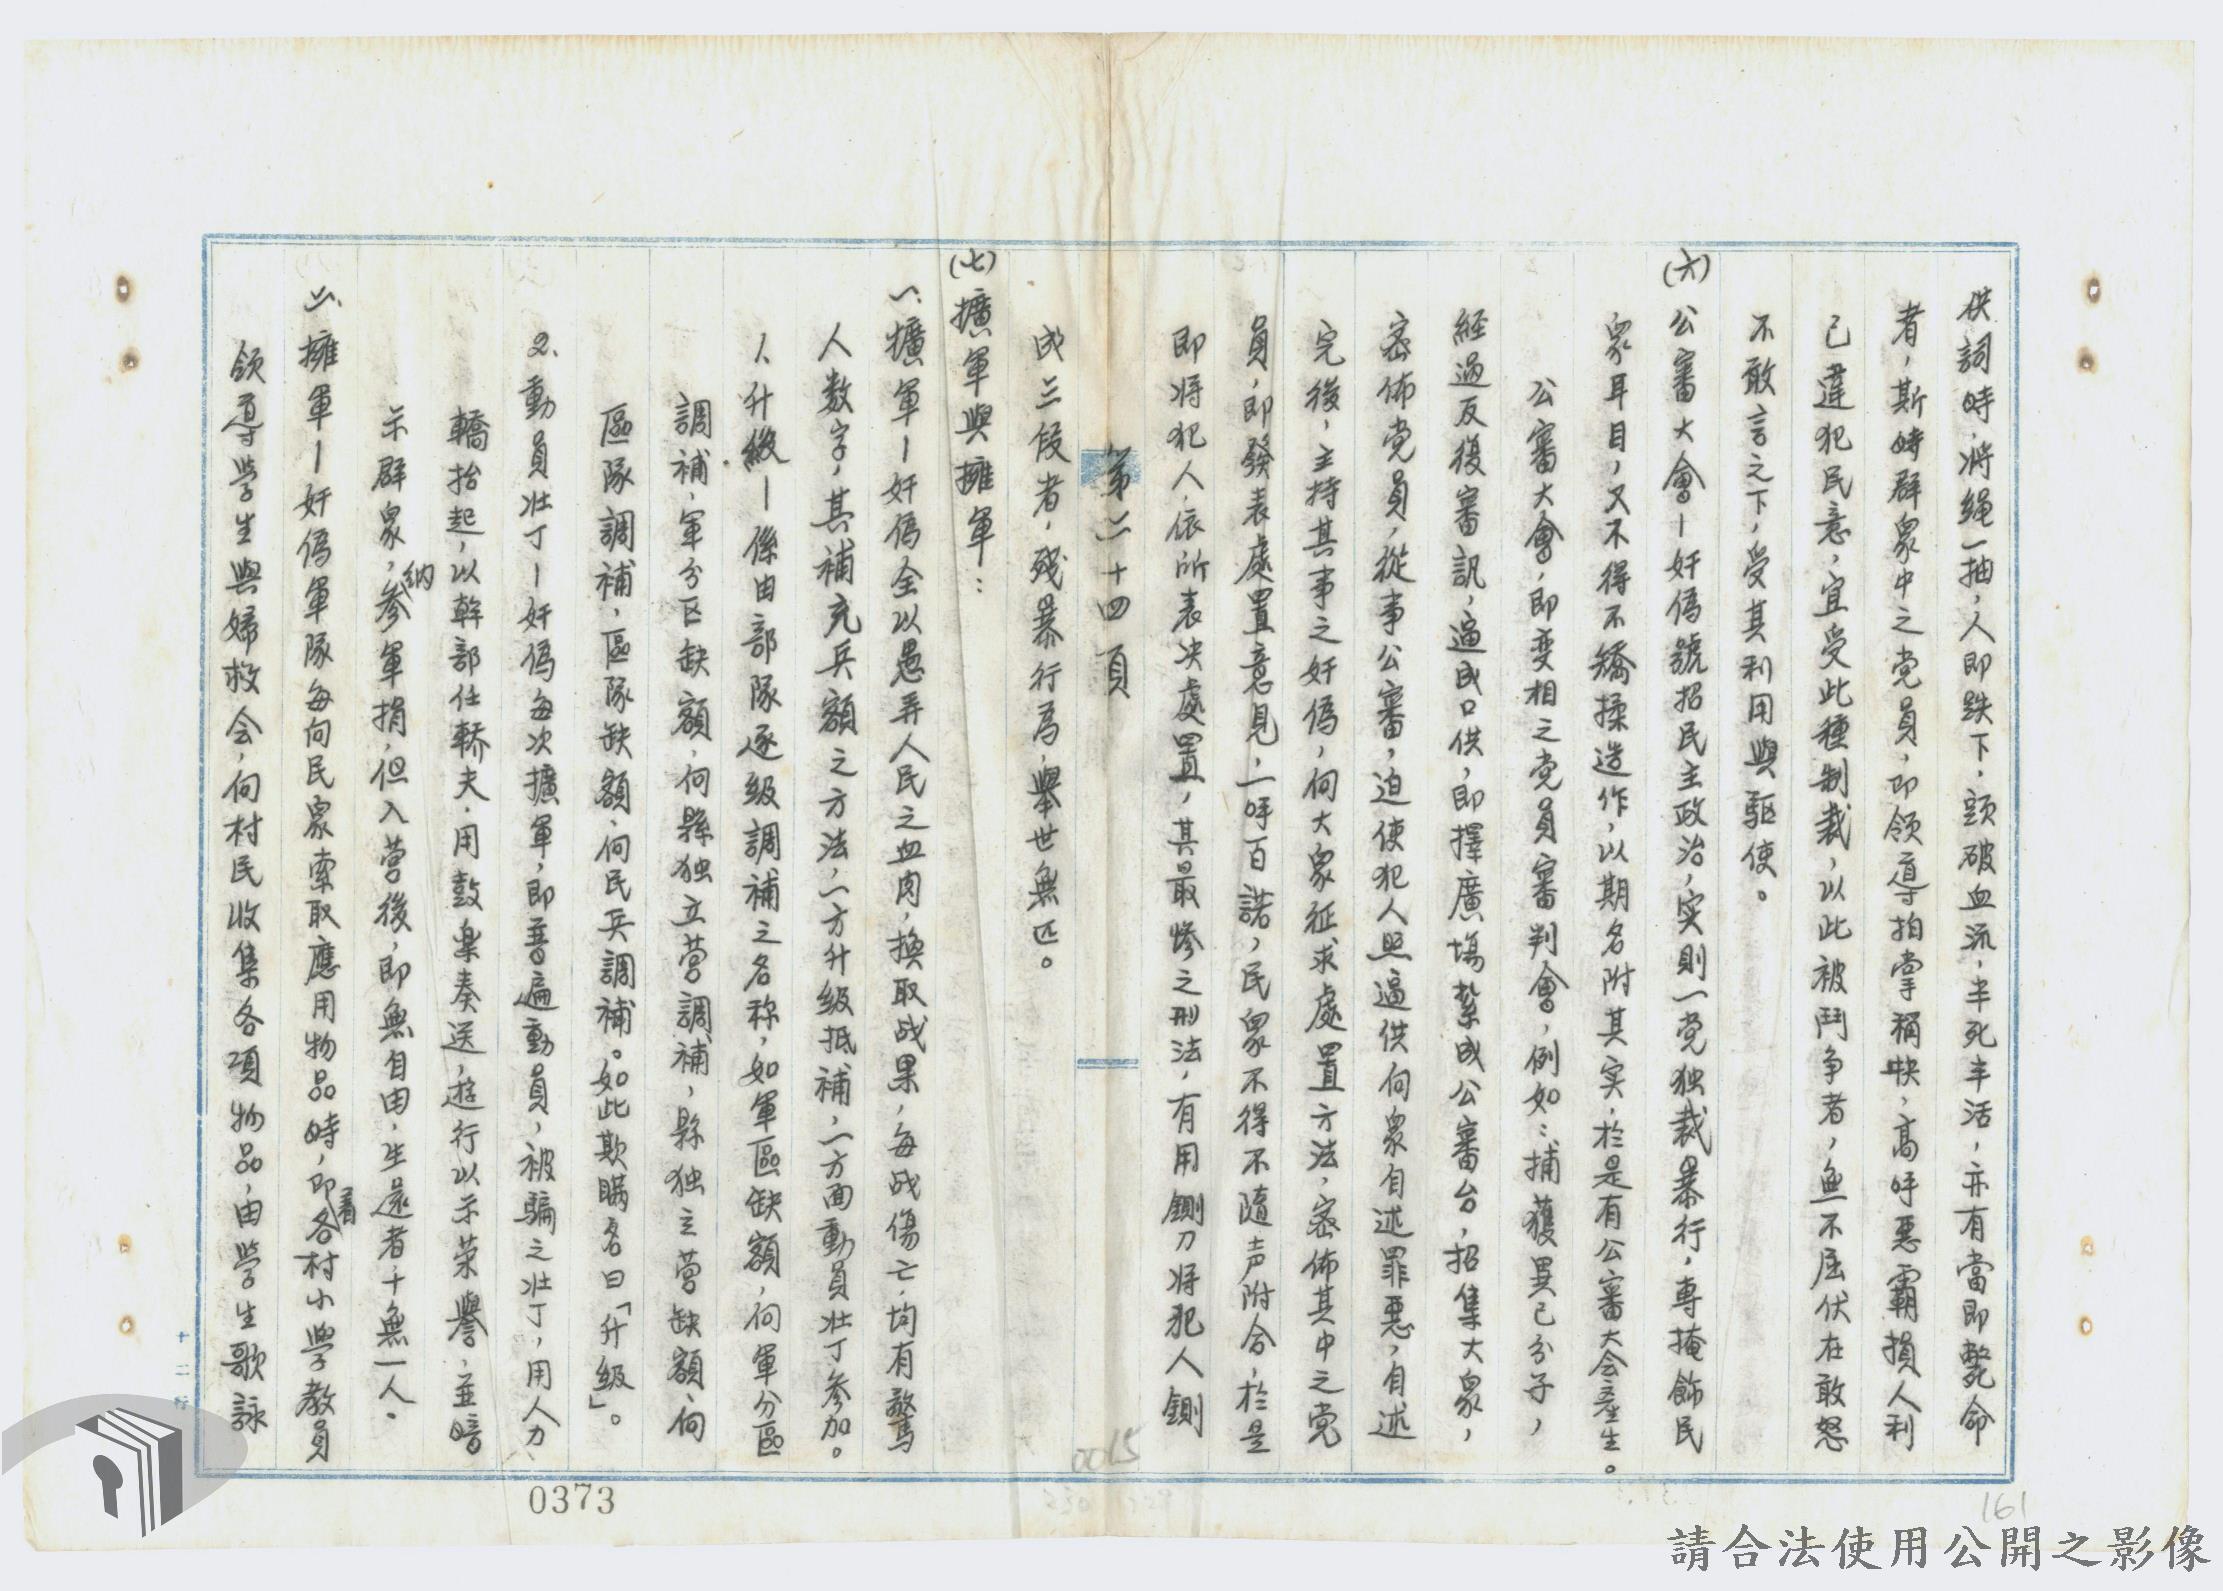 供詞時，將繩一抽，人即跌下，頭破血流，半死半活，亦有當即斃命
者，斯時群眾中之党員，即領導拍掌稱快，高呼惡霸損人利
己違犯民意，宜受此種制裁，以此被鬥争者，無不屈伏在敢怒
不敢言之下，受其利用與驅使。
(六)公審大會—奸偽號招民主政治，实則一党独裁暴行，專掩飾民
眾耳目，又不得不矯揉造作，以期名附其实，於是有公審大会產生。
公審大會，即变相之党員審判會，例如：捕獲異己分子，
経過反復審訊，逼成口供，即擇廣塲紮成公審台，招集大眾，
密佈党員，從事公審，迫使犯人照逼供向眾自述罪惡，自述
完後，主持其事之奸偽，向大眾征求處置方法，密佈其中之党
員，即發表處置意見，一呼百諾，民眾不得不隨声附合，於是
即将犯人依所表决處置，其最惨之刑法，有用鍘刀将犯人鍘
第二十四頁
成三段者，殘暴行為，舉世無匹。
(七)擴軍與擁軍：
一、擴軍—奸偽全以愚弄人民之血肉，換取战果，每战傷亡，均有驚
人数字，其補充兵額之方法，一方升级抵補，一方面動員壮丁参加。
1、升級—係由部隊逐級調補之名称，如軍區缺額，向軍分區
調補，軍分区缺額，向縣独立营調補，縣独立营缺額，向
區隊調補，區隊缺額，向民兵調補。如此欺瞞名曰「升級」。
2、動員壮丁—奸偽每次擴軍，即普遍動員，被騙之壮丁，用人力、
轎抬起，以幹部任轎夫，用鼓樂奏送，遊行以示荣譽，並暗
示群眾，参納軍捐，但入营後，即無自由，生還者，十無一人。
二、擁軍—奸偽軍隊每向民眾索取應用物品時，即着各村小學教員
領導學生與婦救会，向村民收集各項物品，由學生歌詠
十二行
0015
0373
161
請合法使用公開之影像